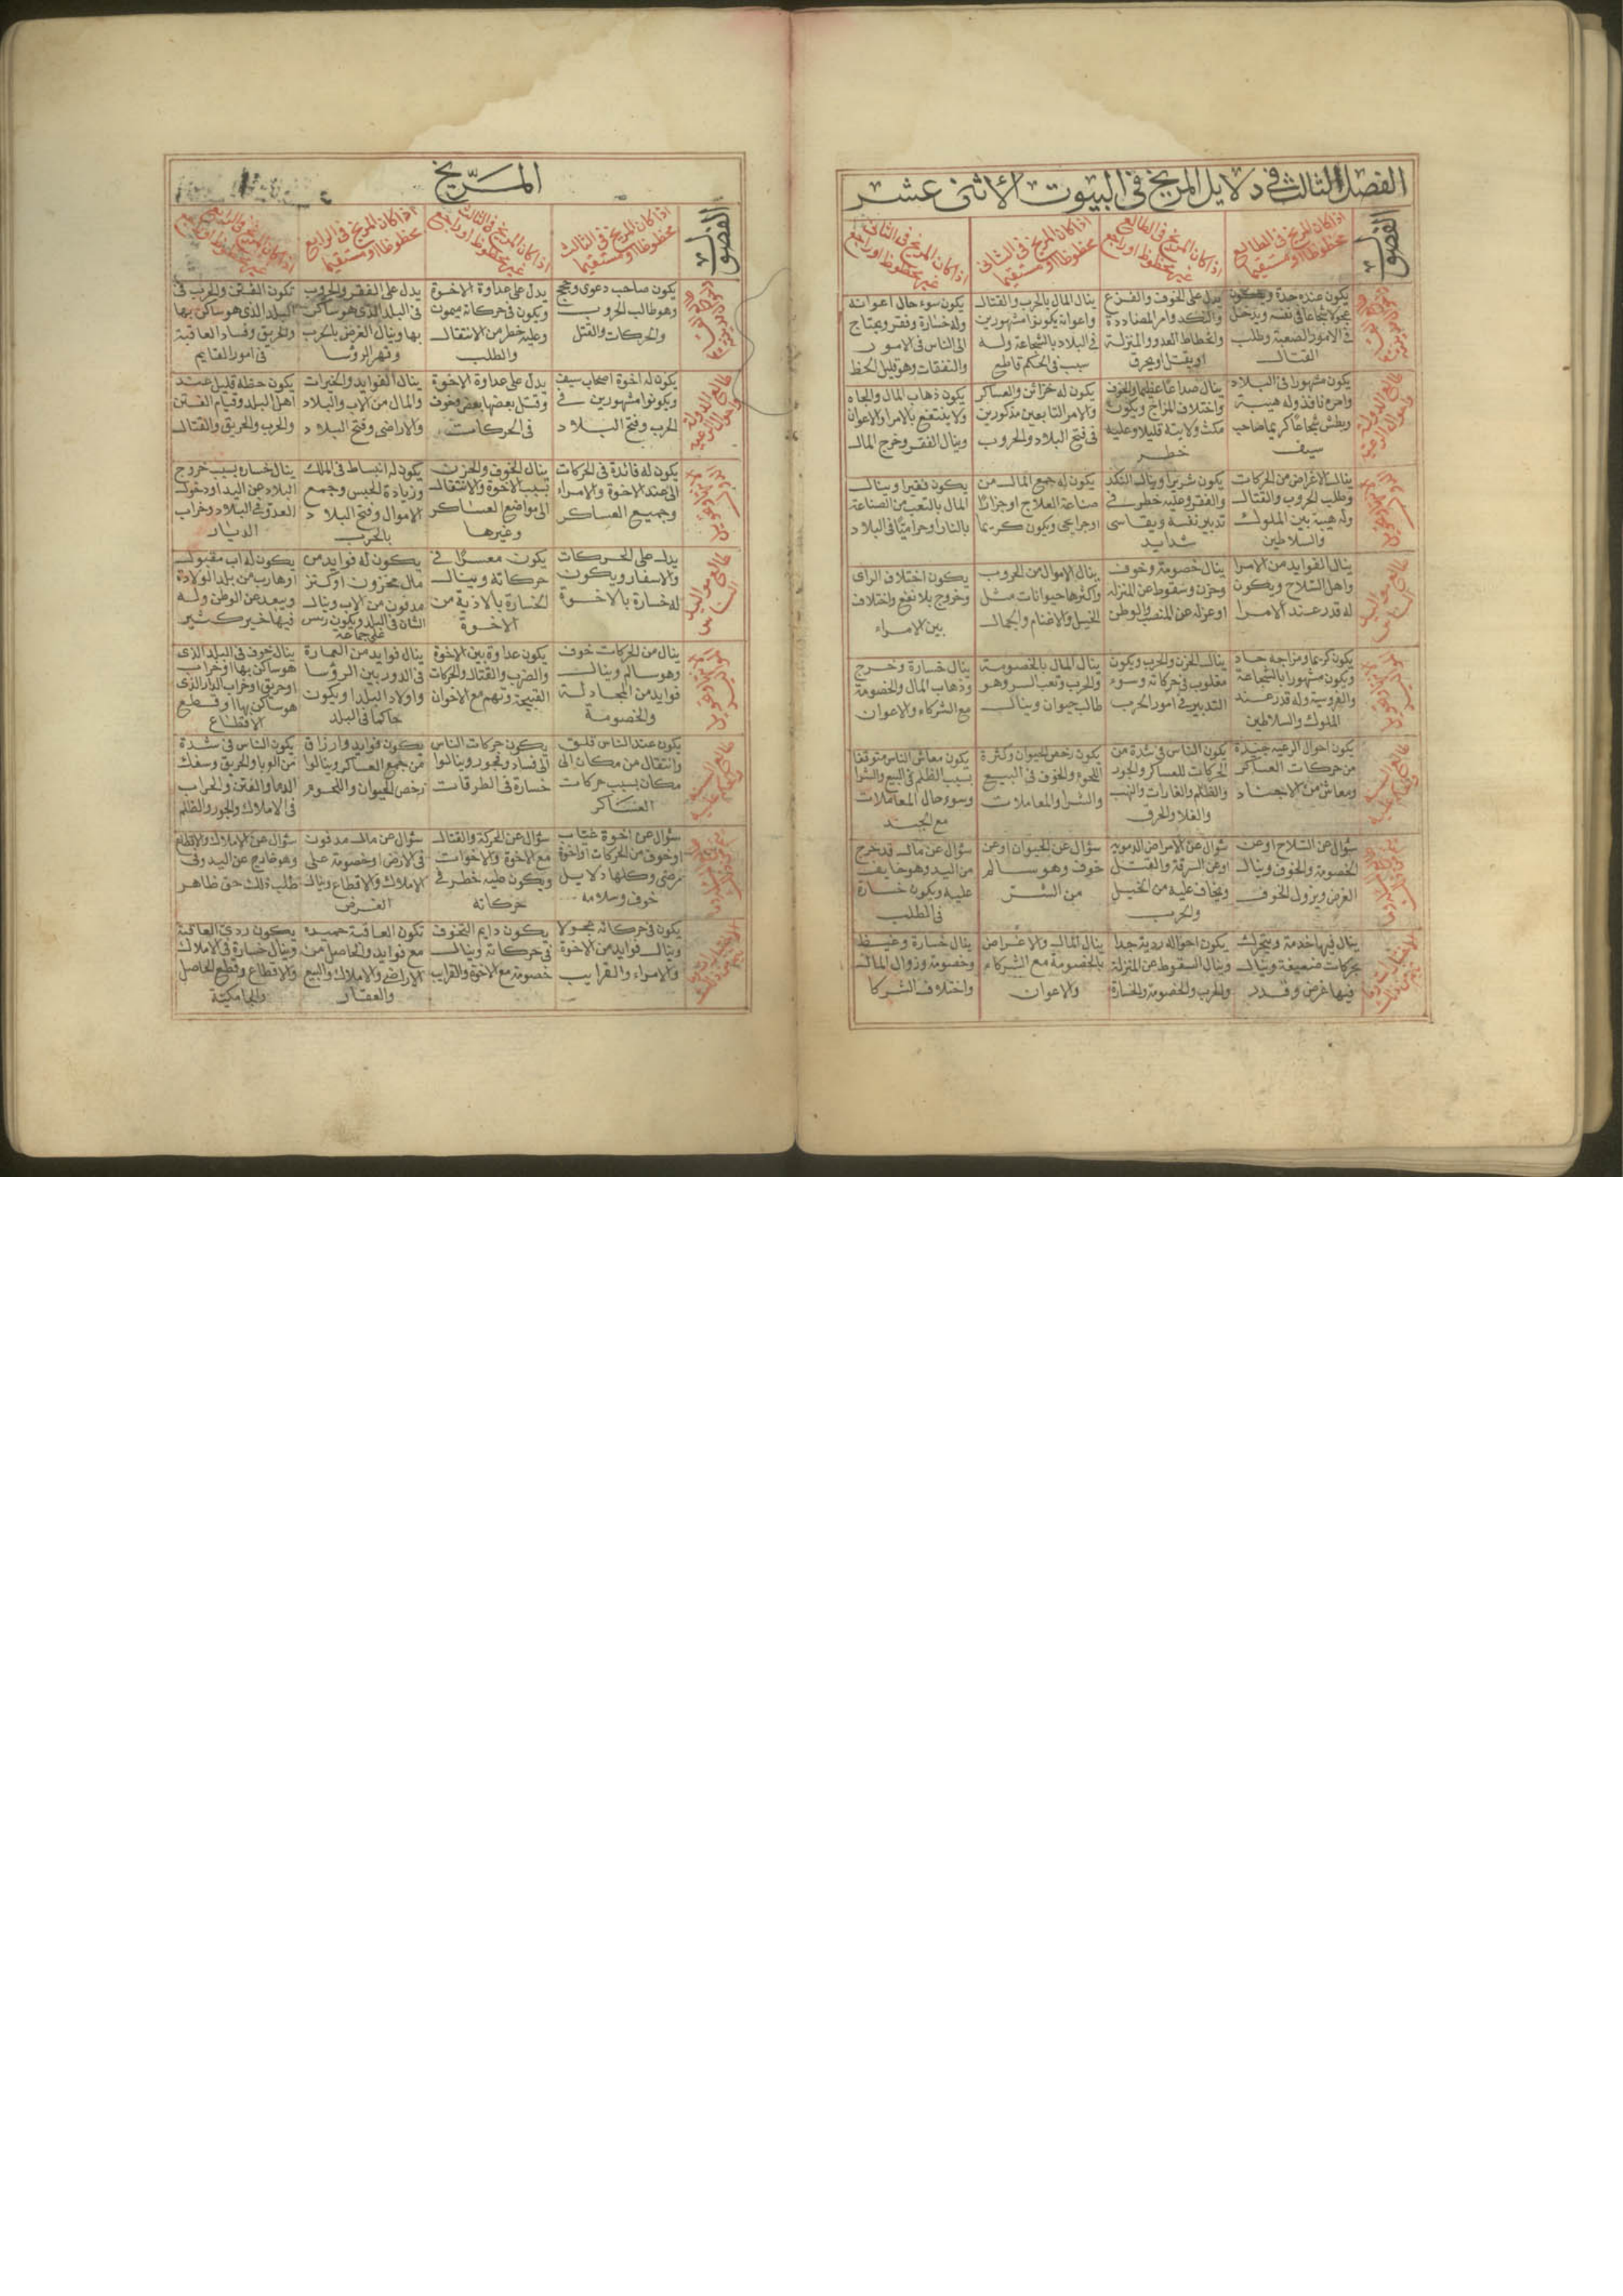 الفصل الثالث فى دلايل المريخ فى البيوت الاثنى عشر
الفصول
اذا كان المريخ فى الطالع
محظوظا او مستقيما
اذا كان المريخ فى الطالع
غير محظوظ او راجع
اذا كان المريخ فى الثانى
محظوظا او مستقيما
اذا كان المريخ فى الثانى
غير محظوظ او راجع
يكون عنده حدة ويكون
عجولا شجاعا فى نفسه ويدخل
فى الامور الصعبة وطلب
القتال
يدل على الخوف والفزع
والنكد وامر المضاددة
وانحطاط العدو والمنزلة
او يقتل او يحرق
ينال المال بالحرب والقتال
واعوانه يكونوا مشهورين
فى البلاد بالشجاعة وله
سيف فى الحكم قاطع
يكون سوء حال اعوانه
وله خسارة وفقر ويحتاج
الى الناس فى الامور
والنفقات وهو قليل الحظ
طالع الدولة
واحوال الرعية
يكون مشهورا فى البلاد
وامره نافذ وله هيبة
وبطش شجاعا كريما صاحب
سيف
ينال صداعا عظيما والخوف
واختلاف المزاج ويكون
مكث ولايته قليلا وعليه
خطر
يكون له خزائن والعساكر
والامر التابعين مذكورين
فى فتح البلاد والحروب
يكون ذهاب المال والجاه
ولا ينتفع بالامرا والاعوان
وينال الفقر وخرج المال
ينال الاغراض من الحركات
وطلب الحروب والقتال
وله هيبة بين الملوك
والسلاطين
يكون شريرا وينال النكد
والفقر وعليه خطر فى
تدبير نفسه ويقاسى
شدايد
يكون له جمع المال من
صناعة العلاج او جزارا
او جرايحى ويكون كريما
يكون فقيرا وينال
المال بالتعب من الصناعة
بالنار او حراميا فى البلاد
طالع مواليد
الناس
ينال الفوايد من الامرا
واهل السلاح ويكون
له قدر عند الامرا
ينال خصومة وخوف
وحزن وسقوط عن المنزلة
او عزله عن المنصب والوطن
ينال الاموال من الحروب
واكثرها حيوانات مثل
الخيل والاغنام والجمال
يكون اختلاف الراى
وخروج بلا نفع واختلاف
بين الامراء
يكون كريما ومزاجه حاد
ويكون مشهورا بالشجاعة
والفروسية وله قدر عند
الملوك والسلاطين
ينال الحزن والحرب ويكون
مغلوب فى حركاته وسوء
التدبير فى امور الحرب
ينال المال بالخصومة
والحرب وتعب السر وهو
طالب حيوان وينال
ينال خسارة وخرج
وذهاب المال والخصومة
مع الشركاء والاعوان
يكون احوال الرعية جيدة
من حركات العساكر
ومعاش من الاجناد
يكون الناس فى شدة من
الحركات للعساكر والجور
والظلم والغارات والنهب
والغلا والحرق
يكون رخص الحيوان وكثرة
اللحوم والخوف فى البيع
والشرا والمعاملات
يكون معاش الناس متوقفا
بسبب الظلم فى البيع والشرا
وسوء حال المعاملات
مع الجند
سؤال عن السلاح او عن
الخصومة والخوف وينال
الغرض ويزول الخوف
سؤال عن الامراض الدموية
او عن السرقة والقتل
ويخاف عليه من الخيل
والحرب
سؤال عن الحيوان او عن
خوف وهو سالم
من الشر
سؤال عن مال قد خرج
من اليد وهو خايف
عليه ويكون خسارة
فى الطلب
ينال فيها خدمة ويتحرك
بحركات ضعيفة وينال
فيها غرض وقدر
يكون احواله ردية جدا
وينال السقوط عن المنزلة
والحرب والخصومة والخسارة
ينال المال والاغراض
بالخصومة مع الشركاء
والاعوان
ينال خسارة وغيظ
وخصومة وزوال المال
واختلاف الشركا
المريخ
الفصول
اذا كان المريخ فى الثالث
محظوظا او مستقيما
اذا كان المريخ فى الثالث
غير محظوظ او راجع
اذا كان المريخ فى الرابع
محظوظا او مستقيما
اذا كان المريخ فى الرابع
غير محظوظ او راجع
يكون صاحب دعوى وحجج
وهو طالب الحروب
والحركات والقتل
يدل على عداوة الاخوة
ويكون فى حركاته ميمون
وعليه خطر من الانتقال
والطلب
يدل على الفقر والحروب
فى البلد الذى هو ساكن
بها وينال الغرض بالحرب
وقهر الرؤسا
تكون الفتن والحرب فى
البلد الذى هو ساكن بها
والحريق وفساد العاقبة
فى امور القايم
طالع الدولة
واحوال الرعية
يكون له اخوة اصحاب سيف
ويكونوا مشهورين فى
الحرب وفتح البلاد
يدل على عداوة الاخوة
وقتل بعضها بعض وخوف
فى الحركات
ينال الفوايد والخيرات
والمال من الاب والبلاد
والاراضى وفتح البلاد
يكون حظه قليل عند
اهل البلد وقيام الفتن
والحرب والحريق والقتال
يكون له فائدة فى الحركات
الى عند الاخوة والامراء
وجميع العساكر
ينال الخوف والحزن
بسبب الاخوة والانتقال
الى مواضع العساكر
وغيرها
يكون له انبساط فى الملك
وزيادة الحبس وجمع
الاموال وفتح البلاد
بالحرب
ينال خساره بسبب خروج
البلاد عن اليد او دخول
العدو فى البلاد وخراب
الديار
طالع مواليد
الناس
يدل على الحركات
والاسفار ويكون
له خسارة بالاخوة
يكون معسرا فى
حركاته وينال
الخسارة بالاذية من
الاخوة
يكون له فوايد من
مال مخزون او كنز
مدفون من الاب وينال
الشان فى البلد ويكون ريس
على جماعة
يكون له اب مقبول
او هارب من بلد الولادة
ويبعد عن الوطن وله
فيها خير كثير
ينال من الحركات خوف
وهو سالم وينال
فوايد من المجادلة
والخصومة
يكون عداوة بين الاخوة
والضرب والقتال والحركات
القبيحة وتهم مع الاخوان
ينال فوايد من العمارة
فى الدور بين الرؤسا
واولاد البلد او يكون
حاكما فى البلد
ينال خوف فى البلد الذى
هو ساكن بها او خراب
او حريق او خراب الدار الذى
هو ساكن بها او قطع
الاقطاع
يكون عند الناس قلق
وانتقال من مكان الى
مكان بسبب حركات
العساكر
يكون حركات الناس
الى فساد وفجور وينالوا
خسارة فى الطرقات
يكون فوايد وارزاق
من جمع العساكر وينالوا
رخص الحيوان واللحوم
يكون الناس فى شدة
من الوبا والحريق وسفك
الدما والفتن والخراب
فى الاملاك والجور والظلم
سؤال عن اخوة غياب
او خوف من الحركات او اخوة
مرضى وكلها دلايل
خوف وسلامه
سؤال عن الحركة والقتال
مع الاخوة والاخوات
ويكون عليه خطر فى
حركاته
سؤال عن مال مدفون
فى الارض او خصومة على
الاملاك والاقطاع وينال
الغرض
سؤال عن الاملاك والاقطاع
وهو خارج عن اليد وفى
طلب ذلك حق ظاهر
يكون فى حركاته عجولا
وينال فوايد من الاخوة
والامراء والقرايب
يكون دايم الخوف
فى حركاته وينال
خصومة مع الاخوة والقرايب
تكون العاقبة حميده
مع فوايد والحاصل من
الاراضى والاملاك والبيع
والعقار
يكون ردى العاقبة
وينال خسارة فى الاملاك
والاقطاع وقطع الحاصل
والجامكية